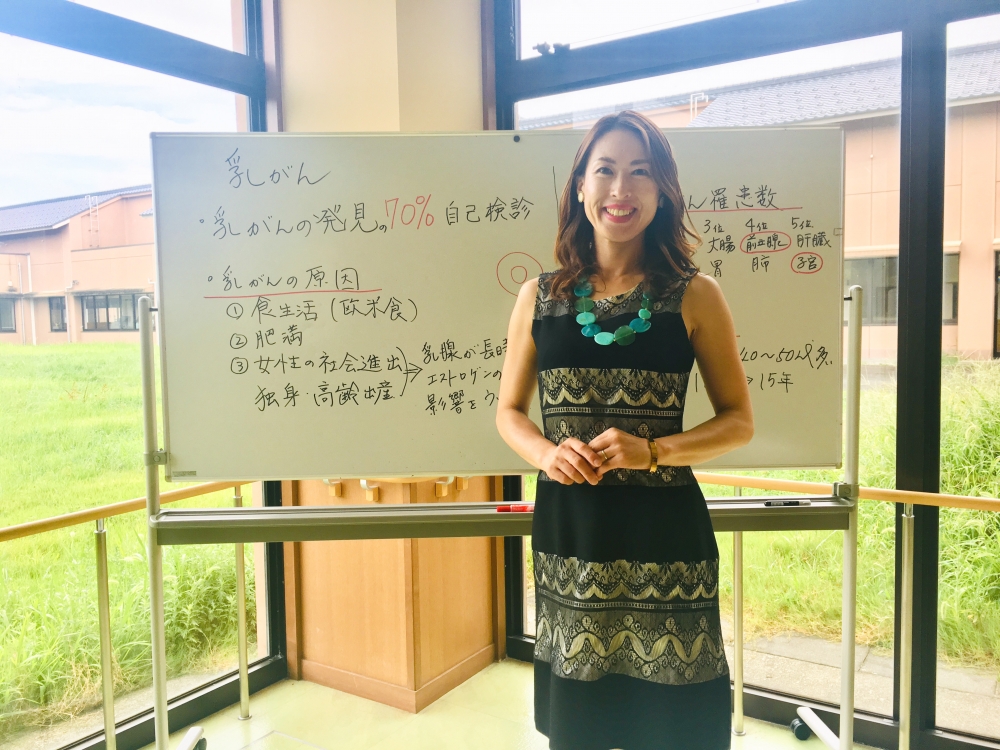 乳がん
・乳がんの発見の70% 自己検診
・乳がんの原因
① 食生活 (欧米食)
② 肥満
③ 女性の社会進出
独身・高齢出産
乳腺が長時
エストロゲンの
影響をう
ん罹患数
3位 4位 5位
大腸 前立腺 肝臓
胃 肺 子宮
40～50代多
→ 15年